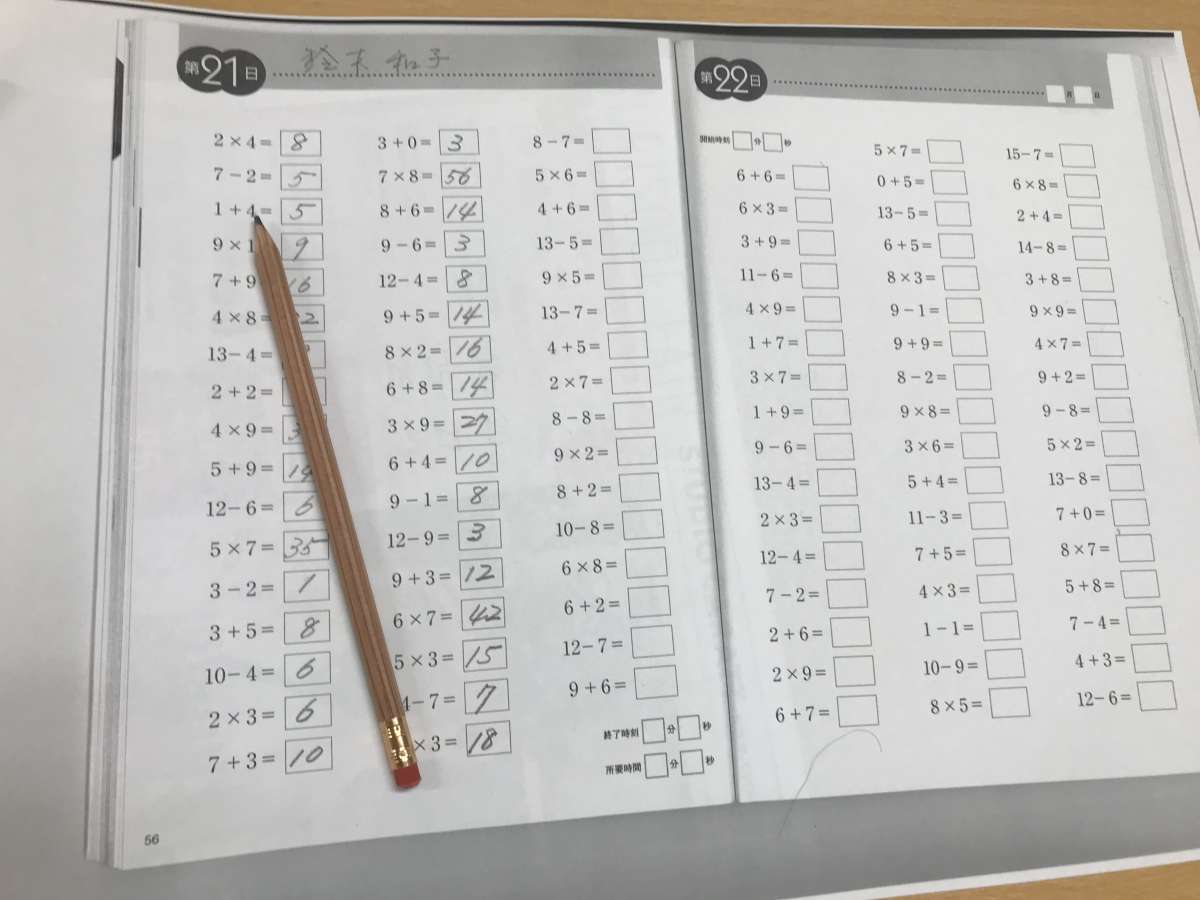 第21日
和子
2×4= 8
7−2= 5
1+4= 5
9×1 9
7+9 16
4×8=
13−4=
2+2=
4×9=
5+9= 14
12−6= 6
5×7= 35
3−2= 1
3+5= 8
10−4= 6
2×3= 6
7+3= 10
3+0= 3
7×8= 56
8+6= 14
9−6= 3
12−4= 8
9+5= 14
8×2= 16
6+8= 14
3×9= 27
6+4= 10
9−1= 8
12−9= 3
9+3= 12
6×7= 42
5×3= 15
4−7= 7
×3= 18
8−7=
5×6=
4+6=
13−5=
9×5=
13−7=
4+5=
2×7=
8−8=
9×2=
8+2=
10−8=
6×8=
6+2=
12−7=
9+6=
終了時刻 分 秒
所要時間 分 秒
56
第22日
月 日
開始時刻 分 秒
6+6=
6×3=
3+9=
11−6=
4×9=
1+7=
3×7=
1+9=
9−6=
13−4=
2×3=
12−4=
7−2=
2+6=
2×9=
6+7=
5×7=
0+5=
13−5=
6+5=
8×3=
9−1=
9+9=
8−2=
9×8=
3×6=
5+4=
11−3=
7+5=
4×3=
1−1=
10−9=
8×5=
15−7=
6×8=
2+4=
14−8=
3+8=
9×9=
4×7=
9+2=
9−8=
5×2=
13−8=
7+0=
8×7=
5+8=
7−4=
4+3=
12−6=